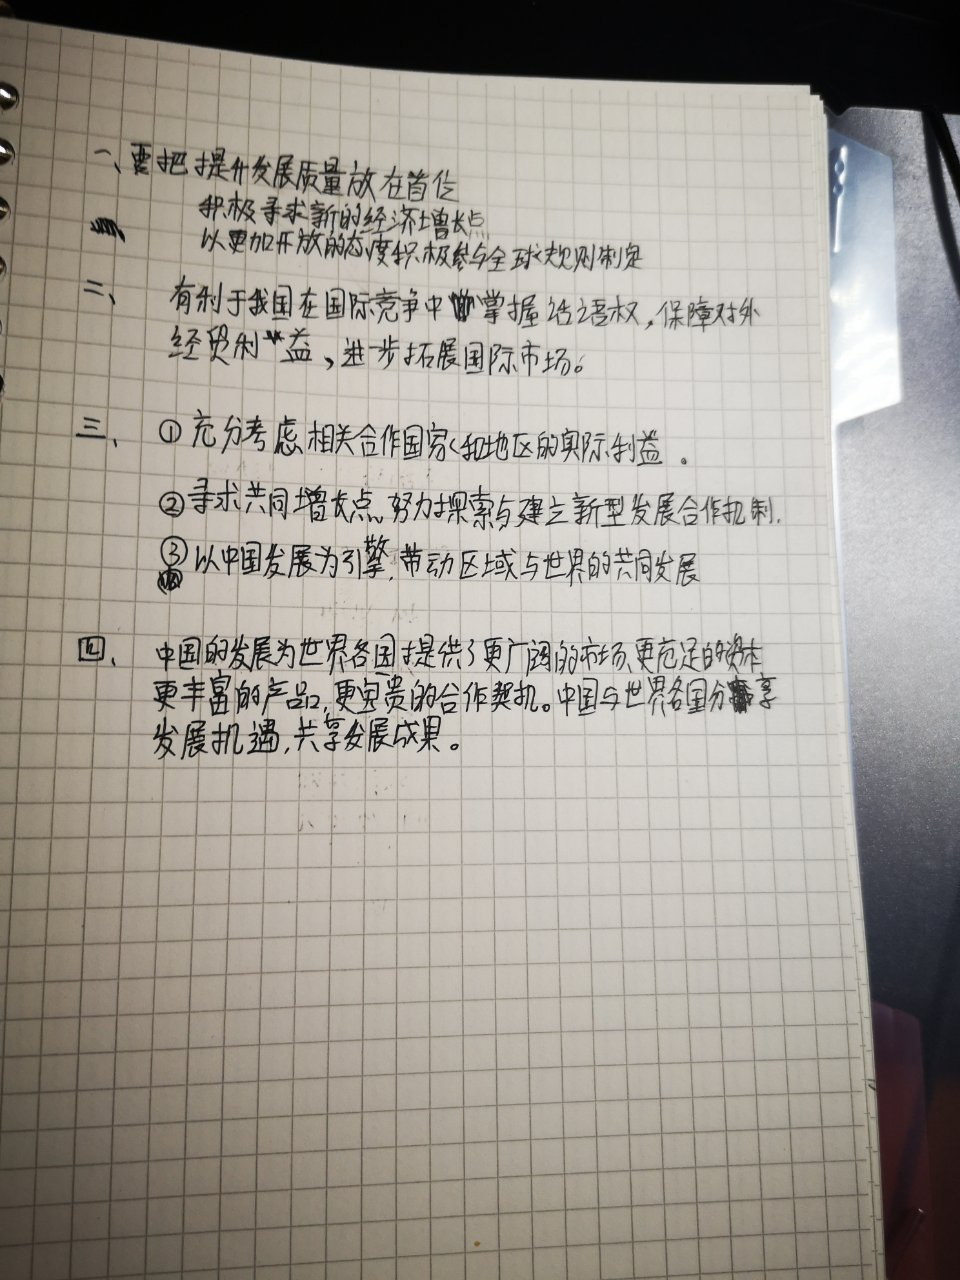 一、要把提升发展质量放在首位
积极寻求新的经济增长点
以更加开放的态度积极参与全球规则制定
二、有利于我国在国际竞争中掌握话语权，保障对外
经贸利益，进步拓展国际市场。
三、①充分考虑相关合作国家和地区的实际利益。
②寻求共同增长点，努力探索与建立新型发展合作机制.
③以中国发展为引擎，带动区域与世界的共同发展
四、中国的发展为世界各国提供了更广阔的市场、更充足的资本
更丰富的产品，更宝贵的合作契机。中国与世界各国分享
发展机遇，共享发展成果。